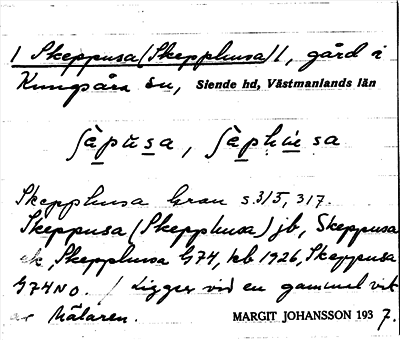 / Skeppusa (Skepphusa) /, gård i
Kungsåra sn, Siende hd, Västmanlands län
ʃàpu̇sa, ʃàphu̇sa
Skepphusa Grau s. 315, 317.
Skeppusa (Skepphusa) jb, Skeppusa
ek, Skepphusa G74, kb 1926, Skeppusa
G74NO. / Ligger vid en gammal vik
av Mälaren. MARGIT JOHANSSON 1937.